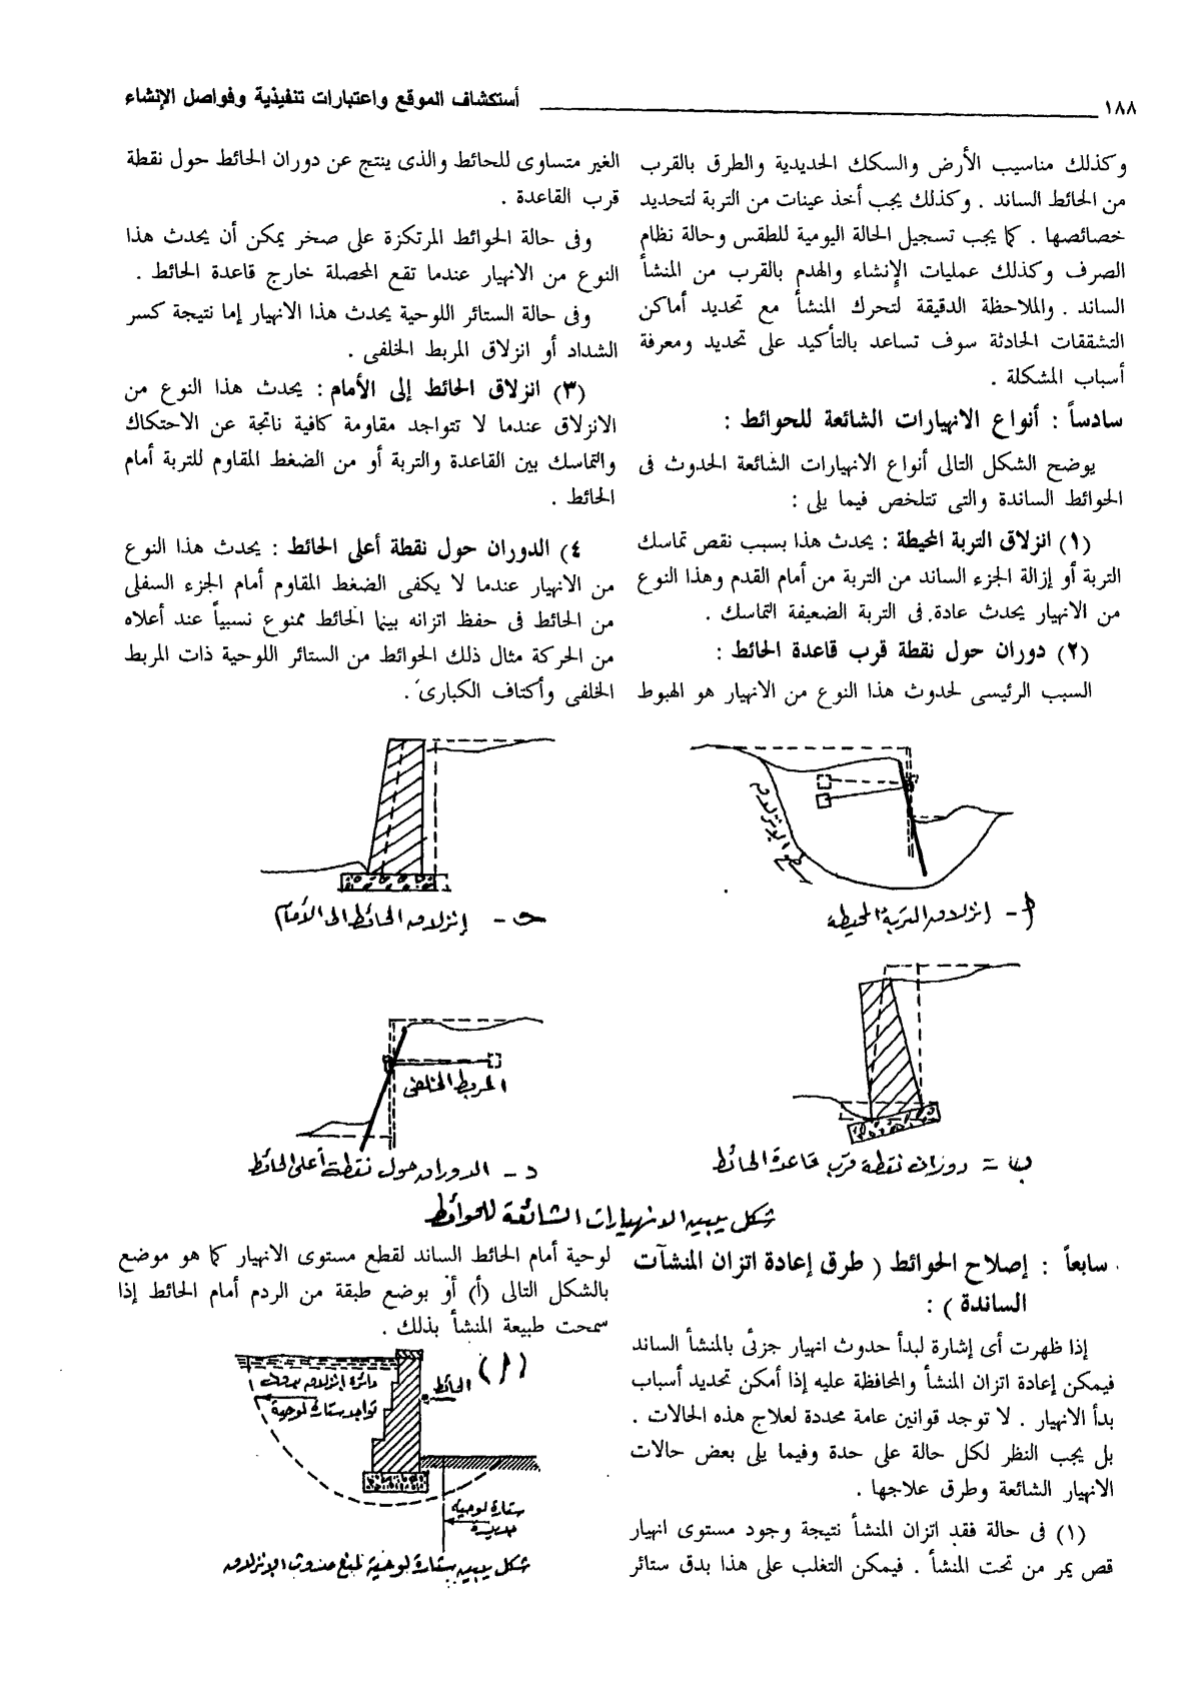 ١٨٨
أستكشاف الموقع واعتبارات تنفيذية وفواصل الإنشاء
وكذلك مناسيب الأرض والسكك الحديدية والطرق بالقرب
من الحائط الساند . وكذلك يجب أخذ عينات من التربة لتحديد
خصائصها . كما يجب تسجيل الحالة اليومية للطقس وحالة نظام
الصرف وكذلك عمليات الإنشاء والهدم بالقرب من المنشأ
الساند . والملاحظة الدقيقة لتحرك المنشأ مع تحديد أماكن
التشققات الحادثة سوف تساعد بالتأكيد على تحديد ومعرفة
أسباب المشكلة .
سادساً : أنواع الانهيارات الشائعة للحوائط :
يوضح الشكل التالى أنواع الانهيارات الشائعة الحدوث فى
الحوائط الساندة والتى تتلخص فيما يلى :
(١) انزلاق التربة المحيطة : يحدث هذا بسبب نقص تماسك
التربة أو إزالة الجزء الساند من التربة من أمام القدم وهذا النوع
من الانهيار يحدث عادة فى التربة الضعيفة التماسك .
(٢) دوران حول نقطة قرب قاعدة الحائط :
السبب الرئيسى لحدوث هذا النوع من الانهيار هو الهبوط
الغير متساوى للحائط والذى ينتج عن دوران الحائط حول نقطة
قرب القاعدة .
وفى حالة الحوائط المرتكزة على صخر يمكن أن يحدث هذا
النوع من الانهيار عندما تقع المحصلة خارج قاعدة الحائط .
وفى حالة الستائر اللوحية يحدث هذا الانهيار إما نتيجة كسر
الشداد أو انزلاق المربط الخلفى .
(٣) انزلاق الحائط إلى الأمام : يحدث هذا النوع من
الانزلاق عندما لا تتواجد مقاومة كافية ناتجة عن الاحتكاك
والتماسك بين القاعدة والتربة أو من الضغط المقاوم للتربة أمام
الحائط .
٤) الدوران حول نقطة أعلى الحائط : يحدث هذا النوع
من الانهيار عندما لا يكفى الضغط المقاوم أمام الجزء السفلى
من الحائط فى حفظ اتزانه بينما الحائط ممنوع نسبياً عند أعلاه
من الحركة مثال ذلك الحوائط من الستائر اللوحية ذات المربط
الخلفى وأكتاف الكبارى .
سطح الانزلاق
أ - إنزلاق التربة المحيطة
حـ - إنزلاق الحائط الى الأمام
ب - دوران نقطة قرب قاعدة الحائط
المربط الخلفى
د - الدوران حول نقطة أعلى الحائط
شكل يبين الانهيارات الشائعة للحوائط
سابعاً : إصلاح الحوائط ( طرق إعادة اتزان المنشآت
الساندة ) :
إذا ظهرت أى إشارة لبدأ حدوث انهيار جزئى بالمنشأ الساند
فيمكن إعادة اتزان المنشأ والمحافظة عليه إذا أمكن تحديد أسباب
بدأ الانهيار . لا توجد قوانين عامة محددة لعلاج هذه الحالات .
بل يجب النظر لكل حالة على حدة وفيما يلى بعض حالات
الانهيار الشائعة وطرق علاجها .
(١) فى حالة فقد اتزان المنشأ نتيجة وجود مستوى انهيار
قص يمر من تحت المنشأ . فيمكن التغلب على هذا بدق ستائر
لوحية أمام الحائط الساند لقطع مستوى الانهيار كما هو موضع
بالشكل التالى (أ) أو بوضع طبقة من الردم أمام الحائط إذا
سمحت طبيعة المنشأ بذلك .
(أ)
الحائط
دائرة إنزلاق بدون
تواجد ستائر لوحية
ستارة لوحية
حديدية
شكل يبين ستارة لوحية لمنع حدوث الإنزلاق